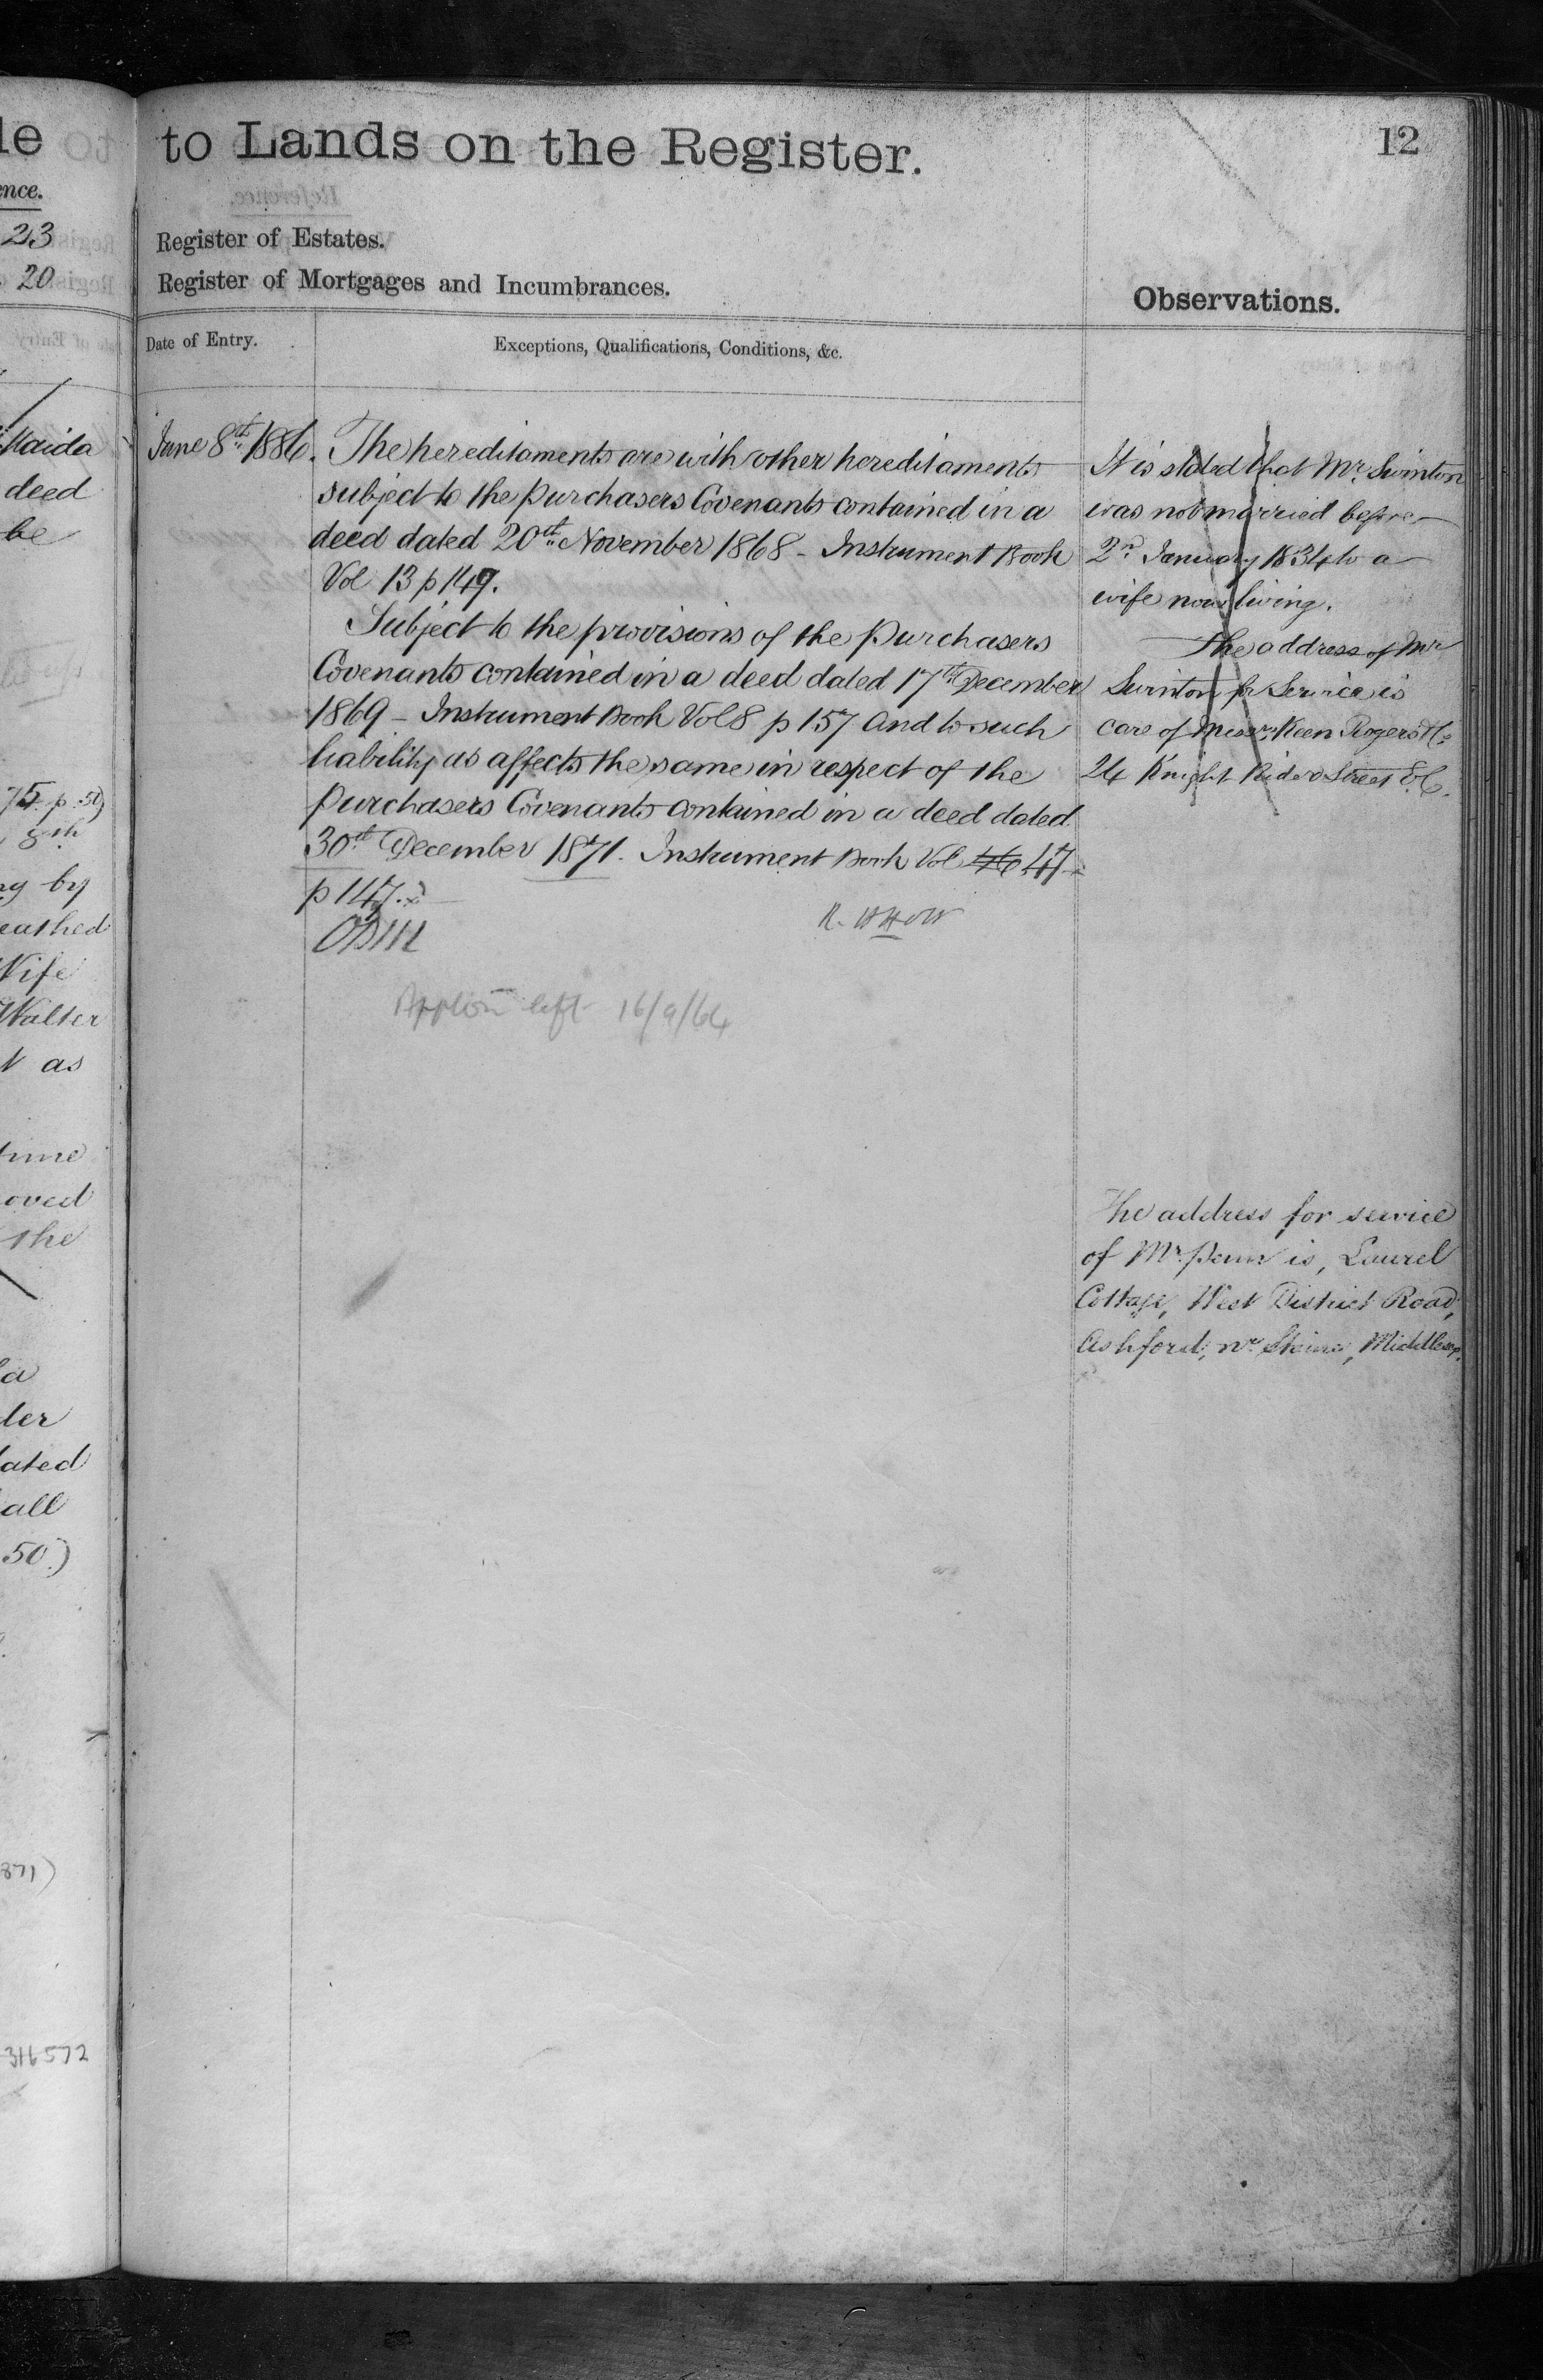 le
ence.
23
20
Maida
deed
be
75. p. 50)
8th
ng by
eathed
Wife
Walter
t as
time
oved
the
la
der
lated
all
50.)
871)
316572
to Lands on the Register.
12
Register of Estates.
Register of Mortgages and Incumbrances.
Observations.
Date of Entry.
Exceptions, Qualifications, Conditions, &c.
June 8th 1886.
The hereditaments are with other hereditaments
subject to the purchasers Covenants contained in a
deed dated 20th November 1868 - Instrument Book
Vol 13 p 149.
Subject to the provisions of the purchasers
Covenants contained in a deed dated 17th December
1869 - Instrument Book Vol 8 p 157 and to such
liability as affects the same in respect of the
purchasers Covenants contained in a deed dated
30th December 1871. Instrument Book Vol 46 47
p 147.
Appltn left 16/9/64
It is stated that Mr. Swinton
was not married before
2nd January 1834 to a
wife now living.
The address of Mr
Swinton for Service is
care of Messrs. Keen Rogers & Co
24 Knight Rider Street E.C.
The address for service
of Mr. Penn is, Laurel
Cottage, West District Road,
Ashford, nr. Staines, Middlesex.